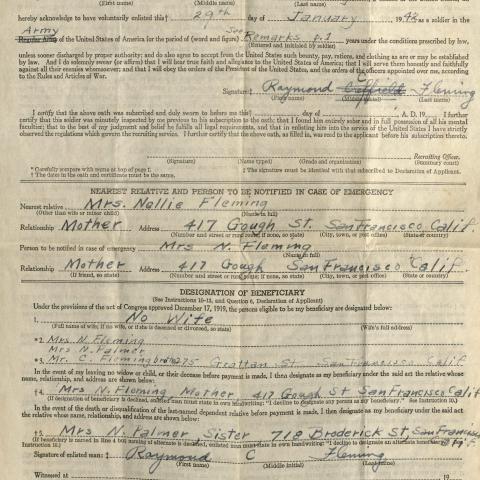 (First name) (Middle name) (Last name)
hereby acknowledge to have voluntarily enlisted this† 29th day of January 1942 as a soldier in the
Army
Regular Army of the United States of America for the period of (word and figure) See Remarks p.1 years under the conditions prescribed by law,
(Entered and initialed by soldier)
unless sooner discharged by proper authority; and do also agree to accept from the United States such bounty, pay, rations, and clothing as are or may be established
by law. And I do solemnly swear (or affirm) that I will bear true faith and allegiance to the United States of America; that I will serve them honestly and faithfully
against all their enemies whomsoever; and that I will obey the orders of the President of the United States, and the orders of the officers appointed over me, according
to the Rules and Articles of War.
Signature‡ Raymond Fleming
(First name) (Middle name) (Last name)
I certify that the above oath was subscribed and duly sworn to before me this† day of , A. D. 19 I further
certify that the soldier was minutely inspected by me previous to his subscription to the oath; that I found him entirely sober and in full possession of all his mental
faculties; that to the best of my judgment and belief he fulfills all legal requirements, and that in enlisting him into the service of the United States I have strictly
observed the regulations which govern the recruiting service. I further certify that the above oath, as filled in, was read to the applicant before his subscription thereto.
Recruiting Officer.
(Signature) (Name typed) (Grade and organization) (Voluntary court)
* Carefully compare with name at top of page 1. ‡ The signature must be identical with that subscribed to Declaration of Applicant.
† The dates in the oath and certificate must be the same.
NEAREST RELATIVE AND PERSON TO BE NOTIFIED IN CASE OF EMERGENCY
Nearest relative Mrs. Nellie Fleming
(Other than wife or minor child) (Name in full)
Relationship Mother Address 417 Gough St. San Francisco Calif.
(Number and street or rural route; if none, so state) (City, town, or post office) (State or country)
Person to be notified in case of emergency Mrs N. Fleming
(Name in full)
Relationship Mother Address 417 Gough San Francisco Calif.
(If friend, so state) (Number and street or rural route; if none, so state) (City, town, or post office) (State or country)
DESIGNATION OF BENEFICIARY
(See Instructions 10-13, and Question 6, Declaration of Applicant)
Under the provisions of the act of Congress approved December 17, 1919, the persons eligible to be my beneficiary are designated below:
1. No Wife
(Full name of wife; if no wife, or if she is deceased or divorced, so state) (Wife's full address)
*2. Mrs N. Fleming
Mrs N. Palmer
*3. Mr. C. Fleming brother 275 Grattan St San Francisco Calif
In the event of my leaving no widow or child, or their decease before payment is made, I then designate as my beneficiary under the said act the relative whose
name, relationship, and address are shown below:
†4. Mrs N. Fleming Mother 417 Gough St San Francisco Calif
(If designation of beneficiary is declined, enlisted man must state in own handwriting: "I decline to designate any beneficiary." See Instruction 11.)
In the event of the death or disqualification of the last-named dependent relative before payment is made, I then designate as my beneficiary under the said act
the relative whose name, relationship, and address are shown below:
†5. Mrs N. Palmer Sister 718 Broderick St San Francisco
Calif.
Instruction 11.)
Signature of enlisted man: ‡ Raymond C Fleming
(First name) (Middle initial) (Last name)
Witnessed at 19